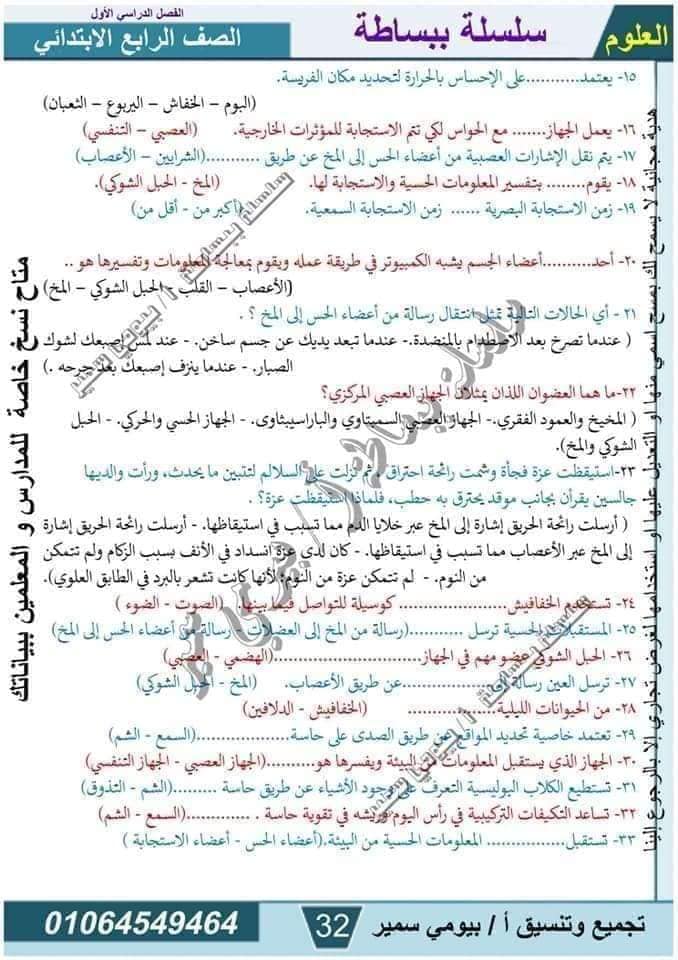 الفصل الدراسي الأول
العلوم
سلسلة ببساطة
الصف الرابع الابتدائي
١٥- يعتمد...........على الإحساس بالحرارة لتحديد مكان الفريسة.
(البوم – الخفاش – اليربوع – الثعبان)
١٦- يعمل الجهاز....... مع الحواس لكي تتم الاستجابة للمؤثرات الخارجية. (العصبي – التنفسي)
١٧- يتم نقل الإشارات العصبية من أعضاء الحس إلى المخ عن طريق ...........(الشرايين – الأعصاب)
١٨- يقوم........ بتفسير المعلومات الحسية والاستجابة لها. (المخ - الحبل الشوكي).
١٩- زمن الاستجابة البصرية ...... زمن الاستجابة السمعية. (أكبر من - أقل من)
٢٠- أحد...........أعضاء الجسم يشبه الكمبيوتر في طريقة عمله ويقوم بمعالجة المعلومات وتفسيرها هو ..
(الأعصاب – القلب - الحبل الشوكي - المخ)
٢١ - أي الحالات التالية تمثل انتقال رسالة من أعضاء الحس إلى المخ ؟ .
( عندما تصرخ بعد الاصطدام بالمنضدة.- عندما تبعد يديك عن جسم ساخن. - عند لمس إصبعك لشوك
الصبار. - عندما ينزف إصبعك بعد جرحه .)
٢٢-ما هما العضوان اللذان يمثلان الجهاز العصبي المركزي؟
( المخيخ والعمود الفقري.- الجهاز العصبي السمبتاوي والباراسيبثاوى. - الجهاز الحسي والحركي. - الحبل
الشوكي والمخ).
٢٣-استيقظت عزة فجأة وشمت رائحة احتراق ، ثم نزلت على السلالم لتتبين ما يحدث، ورأت والديها
جالسين يقرأن بجانب موقد يحترق به حطب، فلماذا استيقظت عزة؟ .
( أرسلت رائحة الحريق إشارة إلى المخ عبر خلايا الدم مما تسبب في استيقاظها. - أرسلت رائحة الحريق إشارة
إلى المخ عبر الأعصاب مما تسبب في استيقاظها. - كان لدى عزة انسداد في الأنف بسبب الزكام ولم تتمكن
من النوم. - لم تتمكن عزة من النوم؛ لأنها كانت تشعر بالبرد في الطابق العلوي).
٢٤- تستخدم الخفافيش.................. كوسيلة للتواصل فيما بينها. (الصوت - الضوء )
٢٥- المستقبلات الحسية ترسل ...........(رسالة من المخ إلى العضلات - رسالة من أعضاء الحس إلى المخ)
٢٦- الحبل الشوكي عضو مهم في الجهاز.....................(الهضمي - العصبي)
٢٧- ترسل العين رسالة إلى...............عن طريق الأعصاب. (المخ - الحبل الشوكي)
٢٨- من الحيوانات الليلية............... (الخفافيش - الدلافين)
٢٩- تعتمد خاصية تحديد المواقع عن طريق الصدى على حاسة............(السمع - الشم)
٣٠- الجهاز الذي يستقبل المعلومات من البيئة ويفسرها هو..........(الجهاز العصبي - الجهاز التنفسي)
٣١- تستطيع الكلاب البوليسية التعرف على وجود الأشياء عن طريق حاسة .........(الشم - التذوق)
٣٢- تساعد التكيفات التركيبية في رأس اليوم وريشه في تقوية حاسة . .............(السمع - الشم)
٣٣- تستقبل................ المعلومات الحسية من البيئة.(أعضاء الحس - أعضاء الاستجابة )
متاح نسخ خاصة للمدارس و المعلمين ببياناتك
سلسلة ببساطة أ / بيومي سمير
تجميع وتنسيق أ / بيومي سمير
32
01064549464